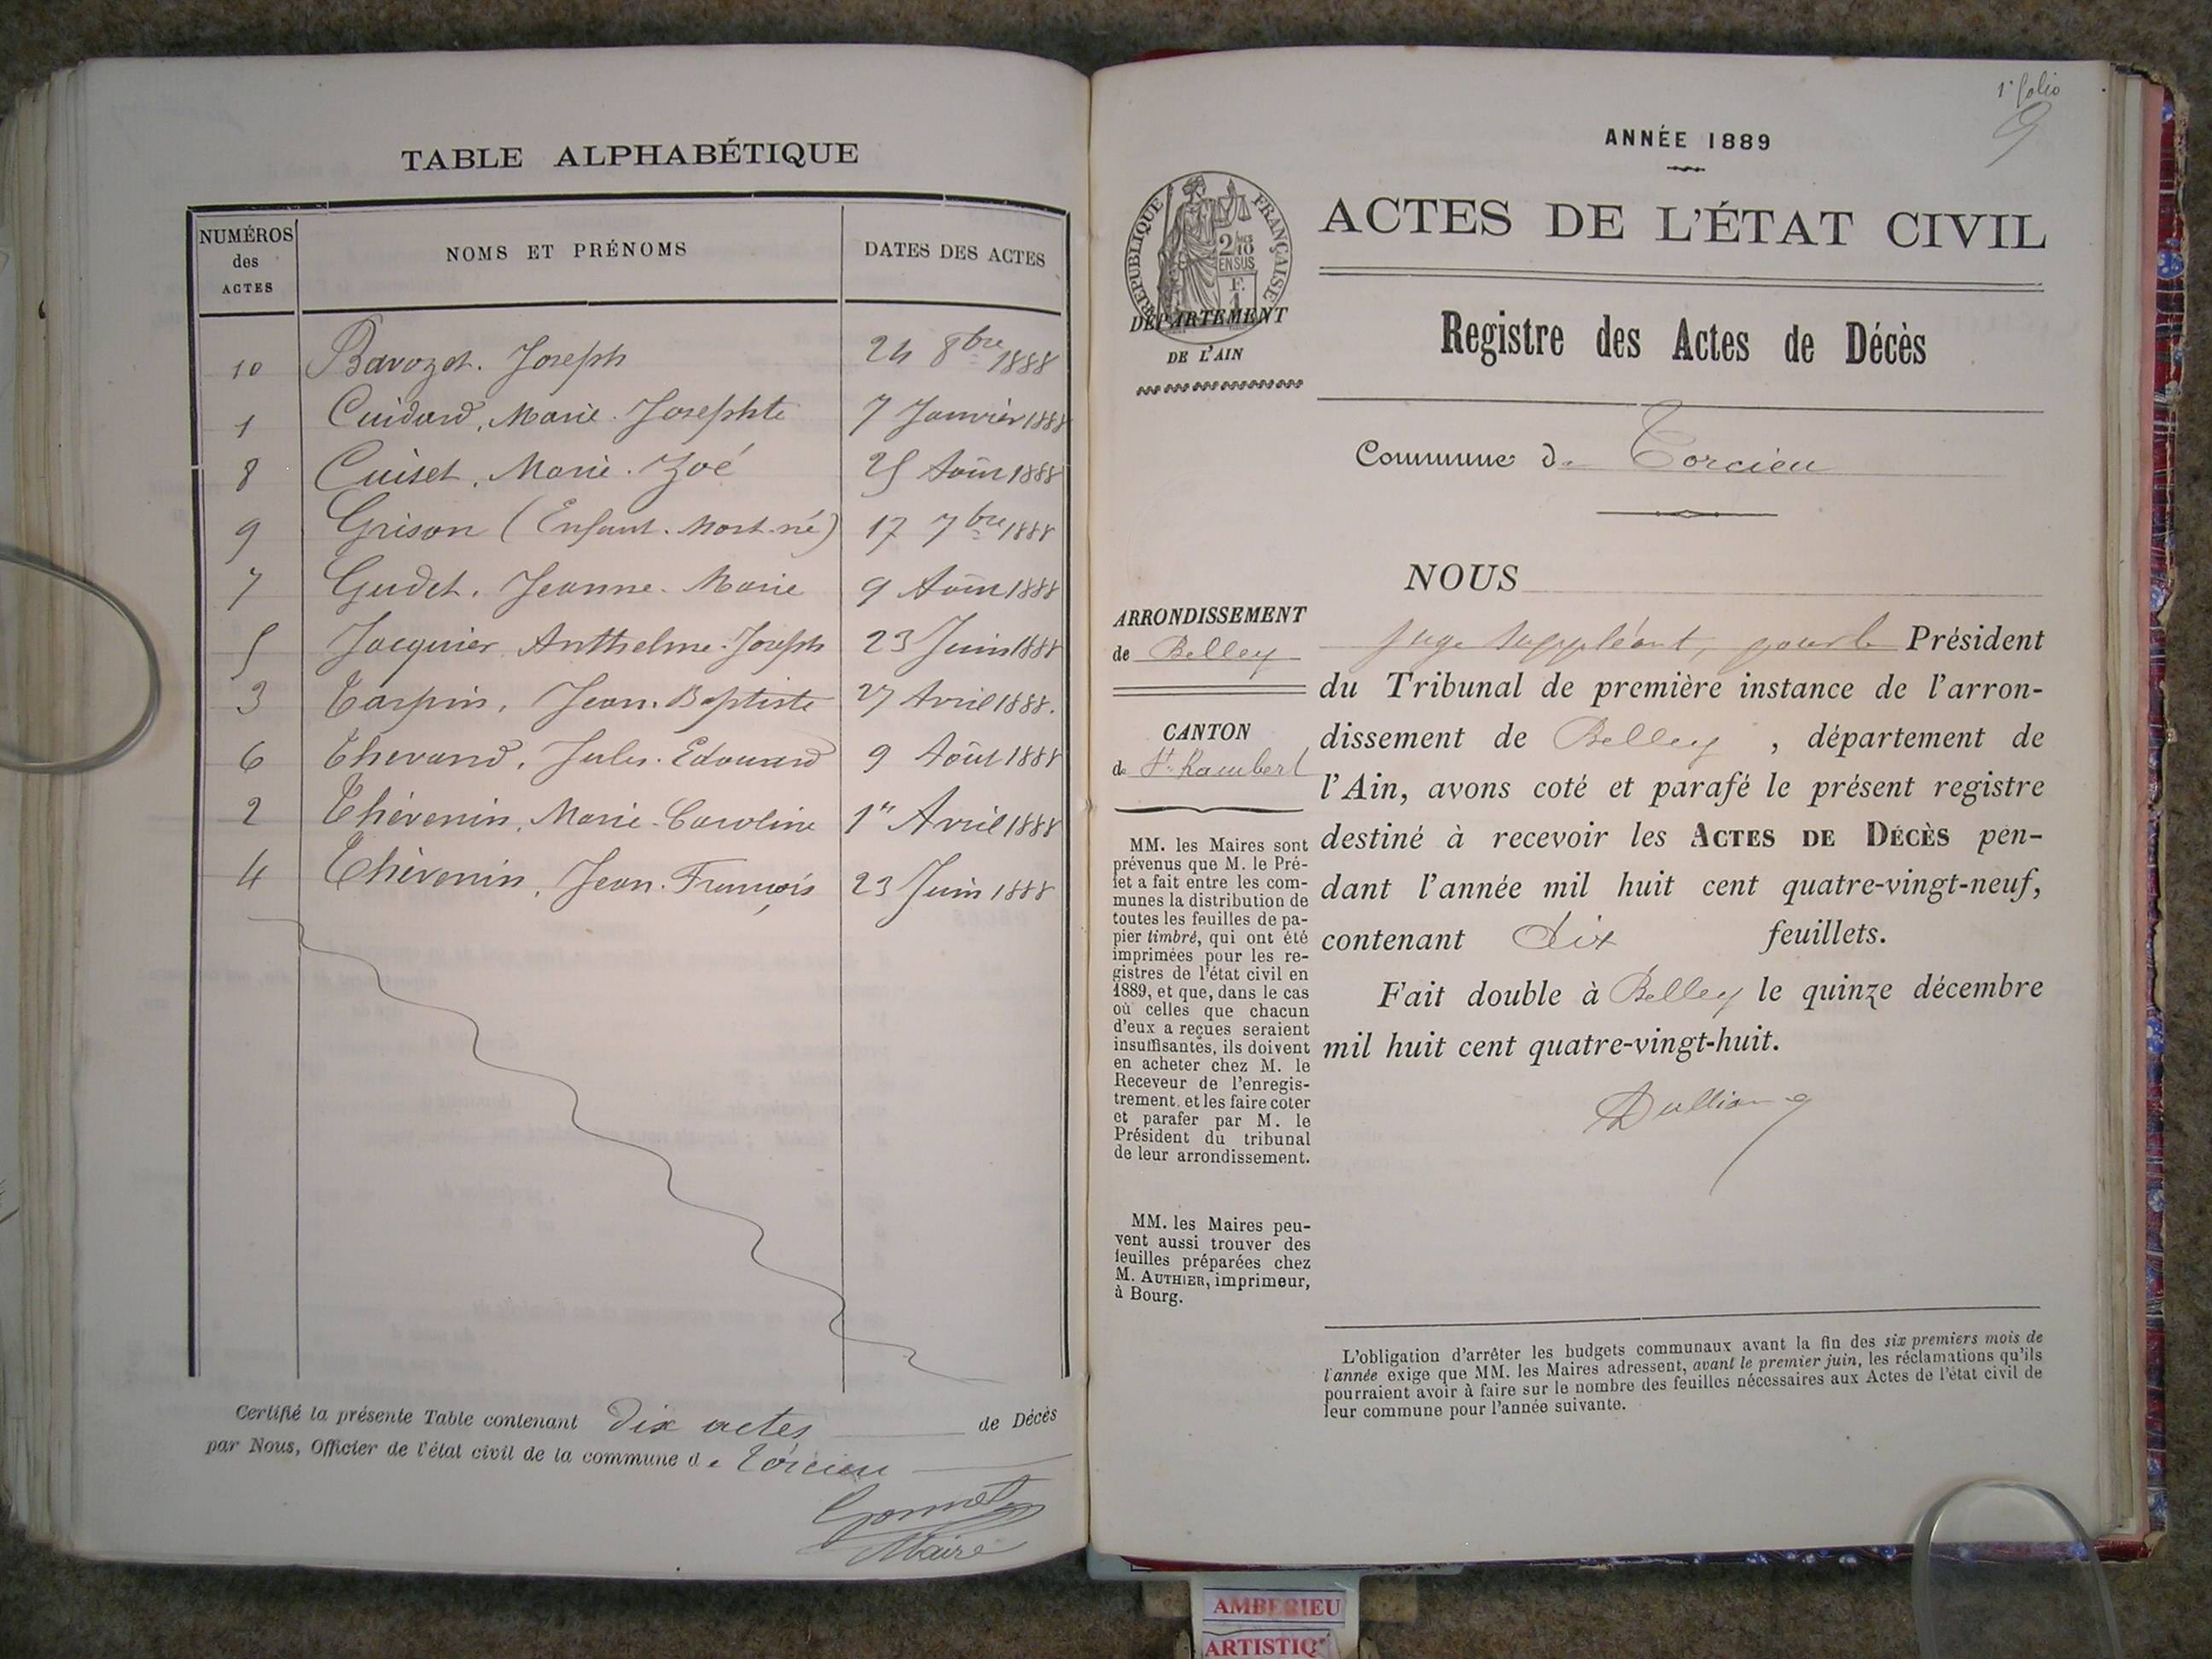 TABLE ALPHABÉTIQUE
NUMÉROS des ACTES
NOMS ET PRÉNOMS
DATES DES ACTES
10 Bavozet. Joseph 24 8bre 1888
1 Cuidard, Marie. Josephte 7 Janvier 1888
8 Cuiset, Marie. Zoé 25 Août 1888
9 Grison (Enfant. Mort-né) 17 7bre 1888
7 Gudet, Jeanne. Marie 9 Août 1888
5 Jacquier Anthelme. Joseph 23 Juin 1888
3 Tarpin, Jean. Baptiste 27 Avril 1888.
6 Thevand, Jules. Edouard 9 Août 1888
2 Thévenin, Marie-Caroline 1er Avril 1888
4 Thévenin, Jean. François 23 Juin 1888
Certifié la présente Table contenant Dix actes de Décès
par Nous, Officier de l'état civil de la commune de Torcieu
Gonnet
Maire
1er folio
ANNÉE 1889
RÉPUBLIQUE FRANÇAISE
2/10 EN SUS
F. 1
DÉPARTEMENT
DE L'AIN
ACTES DE L'ÉTAT CIVIL
Registre des Actes de Décès
Commune de Torcieu
ARRONDISSEMENT
de Belley
CANTON
de St. Rambert
MM. les Maires sont
prévenus que M. le Pré-
fet a fait entre les com-
munes la distribution de
toutes les feuilles de pa-
pier timbré, qui ont été
imprimées pour les re-
gistres de l'état civil en
1889, et que, dans le cas
où celles que chacun
d'eux a reçues seraient
insuffisantes, ils doivent
en acheter chez M. le
Receveur de l'enregis-
trement, et les faire coter
et parafer par M. le
Président du tribunal
de leur arrondissement.
MM. les Maires peu-
vent aussi trouver des
feuilles préparées chez
M. AUTHIER, imprimeur,
à Bourg.
NOUS
Juge Suppléant, pour le Président
du Tribunal de première instance de l'arron-
dissement de Belley, département de
l'Ain, avons coté et parafé le présent registre
destiné à recevoir les ACTES DE DÉCÈS pen-
dant l'année mil huit cent quatre-vingt-neuf,
contenant dix feuillets.
Fait double à Belley le quinze décembre
mil huit cent quatre-vingt-huit.
L'obligation d'arrêter les budgets communaux avant la fin des six premiers mois de
l'année exige que MM. les Maires adressent, avant le premier juin, les réclamations qu'ils
pourraient avoir à faire sur le nombre des feuilles nécessaires aux Actes de l'état civil de
leur commune pour l'année suivante.
AMBERIEU
ARTISTIQ